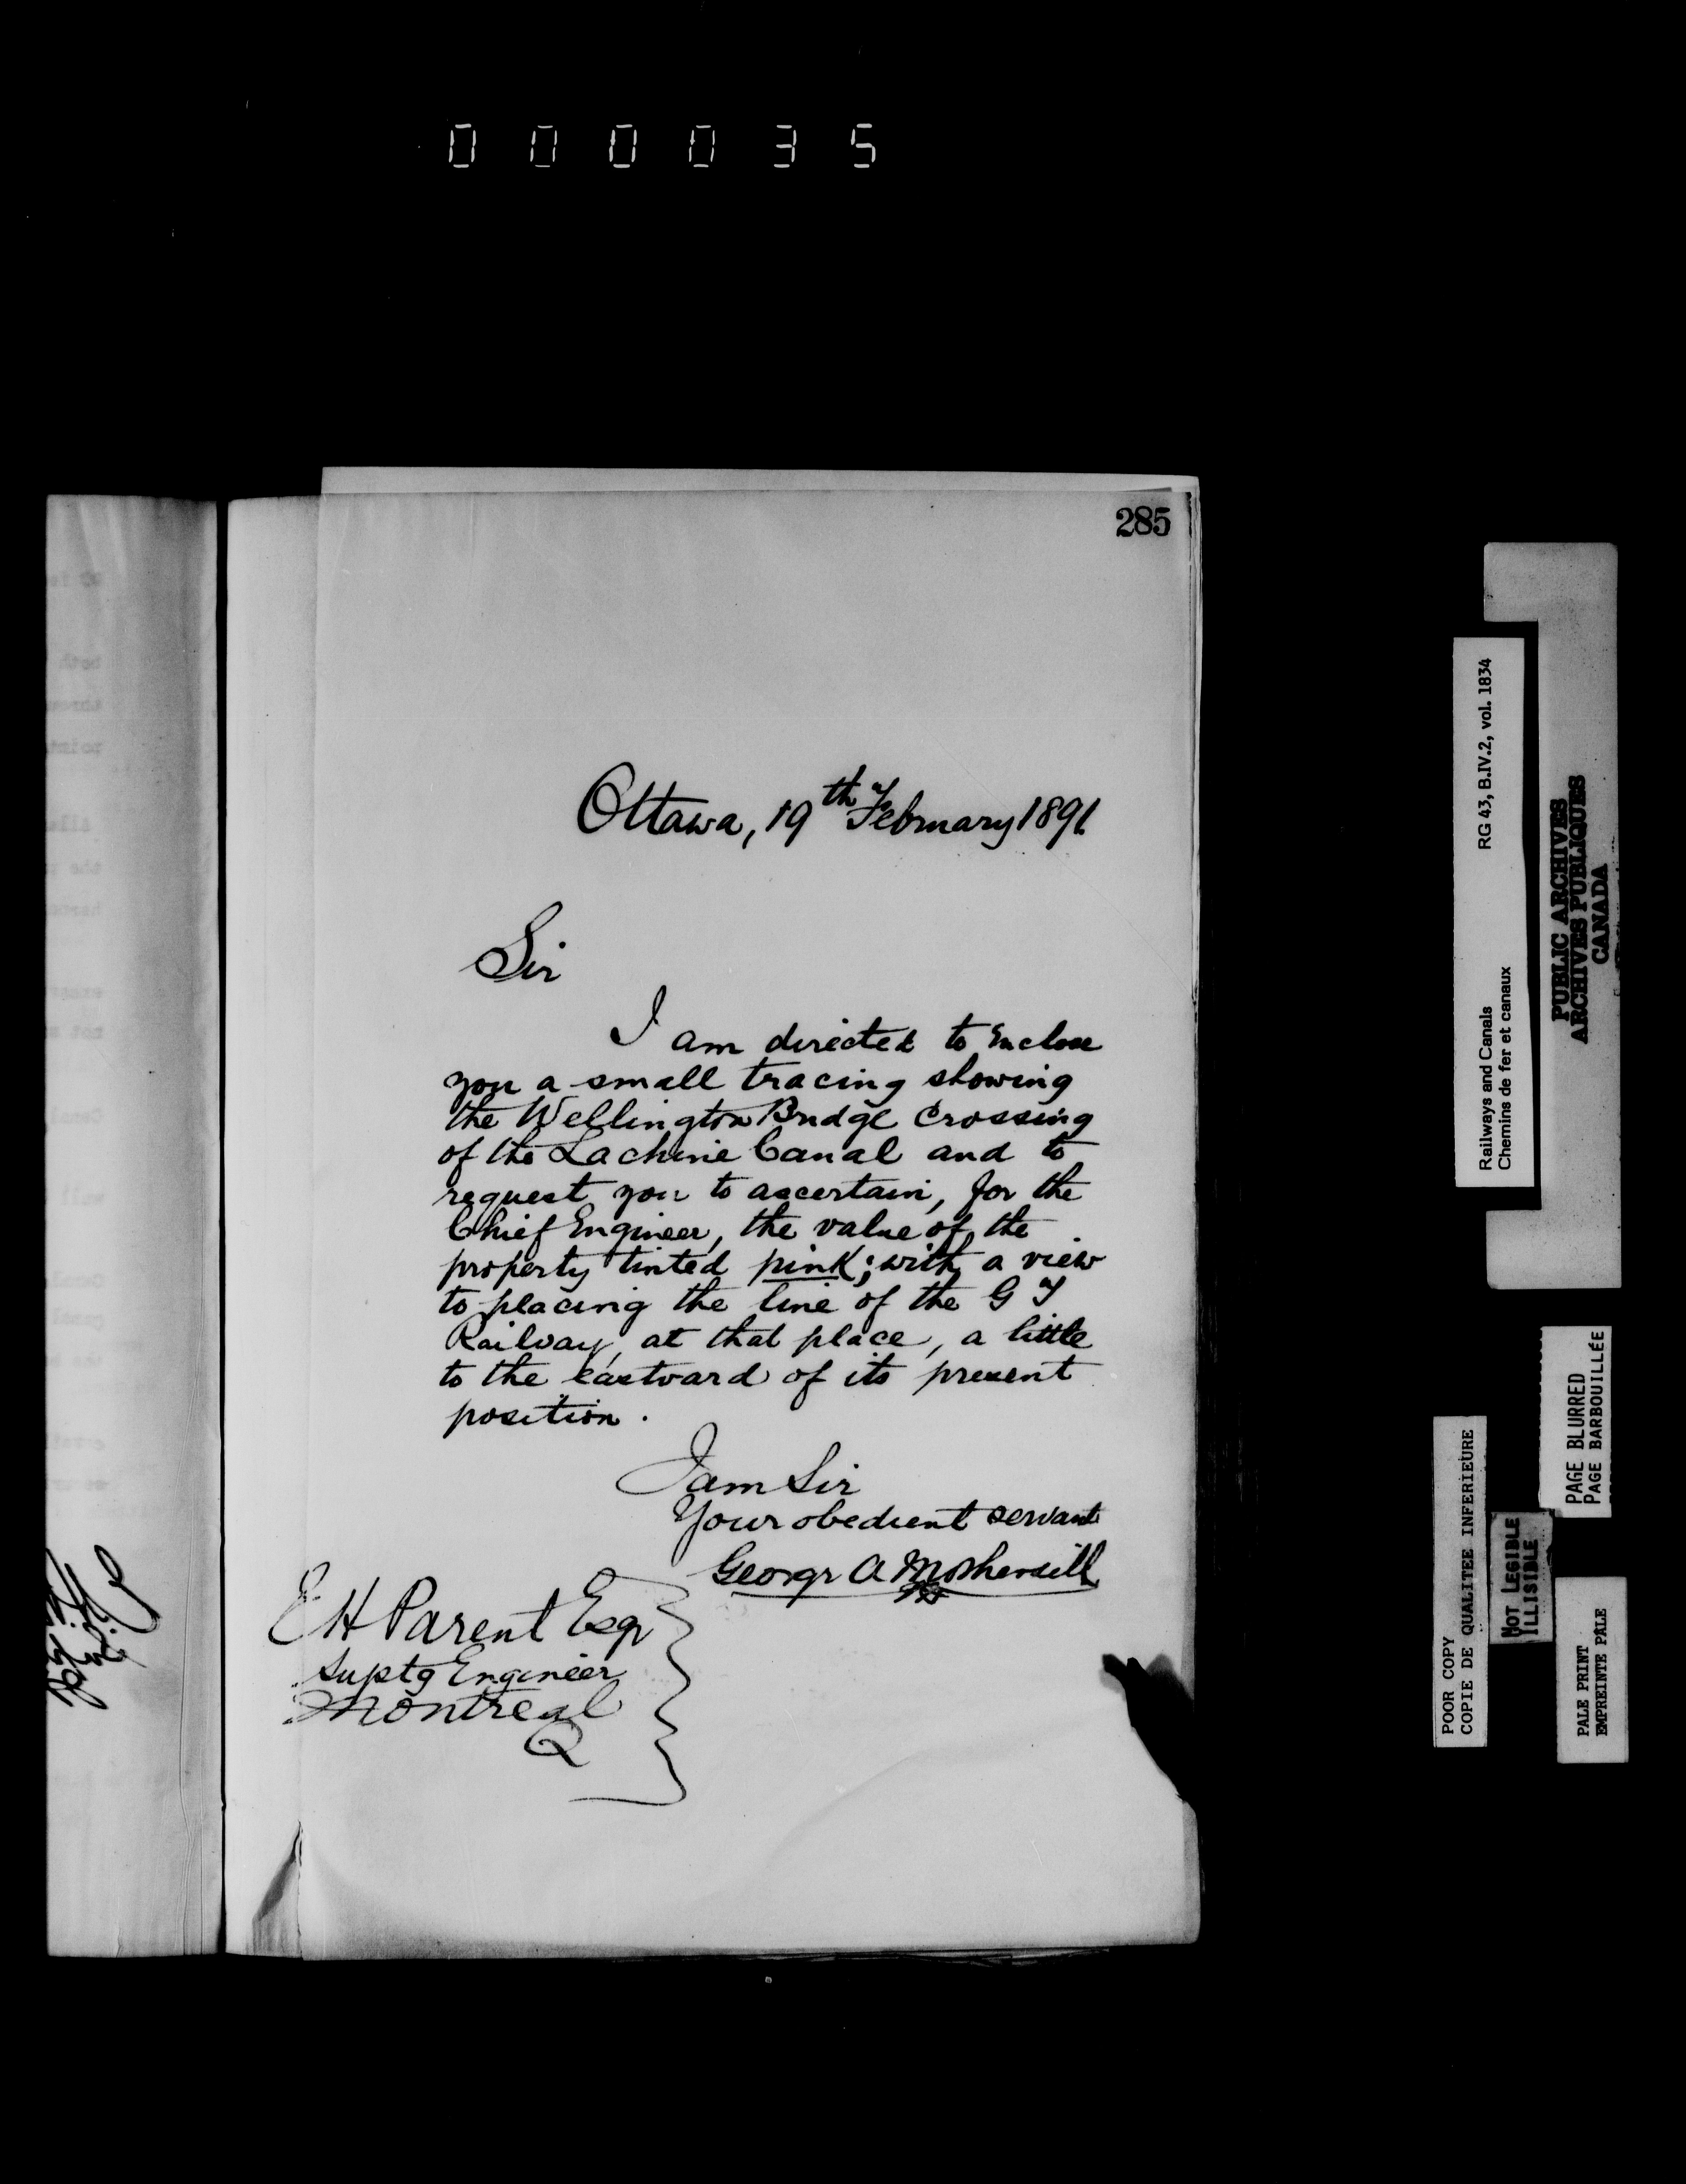 000035
285
Ottawa, 19th February 1891
Sir
I am directed to enclose
you a small tracing showing
the Wellington Bridge crossing
of the Lachine Canal and to
request you to ascertain, for the
Chief Engineer, the value of the
property tinted pink; with a view
to placing the line of the G T
Railway, at that place, a little
to the eastward of its present
position.
I am Sir
Your obedient servant
George A Mothersill
E H Parent Esqr
Suptg Engineer
Montreal
Q
RG 43, B.IV.2, vol. 1834
Railways and Canals
Chemins de fer et canaux
PUBLIC ARCHIVES
ARCHIVES PUBLIQUES
CANADA
PAGE BLURRED
PAGE BARBOUILLÉE
POOR COPY
COPIE DE QUALITEE INFERIEURE
NOT LEGIBLE
ILLISIBLE
PALE PRINT
EMPREINTE PALE